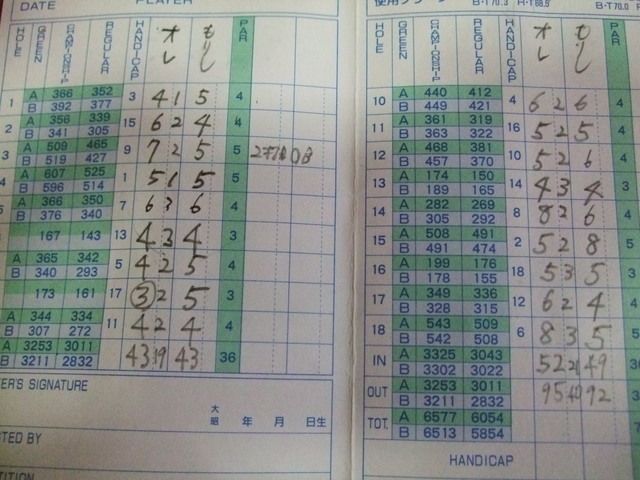 DATE PLAYER
HOLE GREEN CHAMPIONSHIP REGULAR HANDICAP オレ もりし PAR
1 A 366 352 3 4 1 5 4
B 392 377
2 A 356 339 15 6 2 4 4
B 341 305
3 A 509 465 9 7 2 5 5
B 519 427
4 A 607 525 1 5 1 5 5
B 596 514
5 A 366 350 7 6 3 6 4
B 376 340
167 143 13 4 3 4 3
A 365 342 5 4 2 5 4
B 340 293
173 161 17 3 2 5 3
A 344 334 11 4 2 4 4
B 307 272
A 3253 3011 43 19 43 36
B 3211 2832
ER'S SIGNATURE
大昭 年 月 日生
STED BY
TITION
B·T70.3 R·T68.5 B·T70.0
HOLE GREEN CHAMPIONSHIP REGULAR HANDICAP オレ もりし PAR
10 A 440 412 4 6 2 6 4
B 449 421
11 A 361 319 16 5 2 5 4
B 363 322
12 A 468 381 10 5 2 6 4
B 457 370
13 A 174 150 14 4 3 4 3
B 189 165
14 A 282 269 8 8 2 6 4
B 305 292
15 A 508 491 2 5 2 8 5
B 491 474
16 A 199 176 18 5 3 5 3
B 178 155
17 A 349 336 12 6 2 4 4
B 328 315
18 A 543 509 6 8 3 5 5
B 542 508
IN A 3325 3043 52 21 49
B 3302 3022
OUT A 3253 3011 95 40 92
B 3211 2832
TOT. A 6577 6054
B 6513 5854
HANDICAP